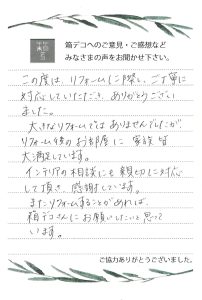 箱デコへのご意見・ご感想など
みなさまの声をお聞かせ下さい。
この度は、リフォームに際し、ご丁寧に
対応していただき、ありがとうござい
ました。
大きなリフォームではありませんでしたが、
リフォーム後のお部屋に家族皆
大満足しています。
インテリアの相談にも親切に対応
して頂き、感謝しています。
またリフォームすることがあれば、
箱デコさんにお願いしたいと思って
います。
ご協力ありがとうございました。